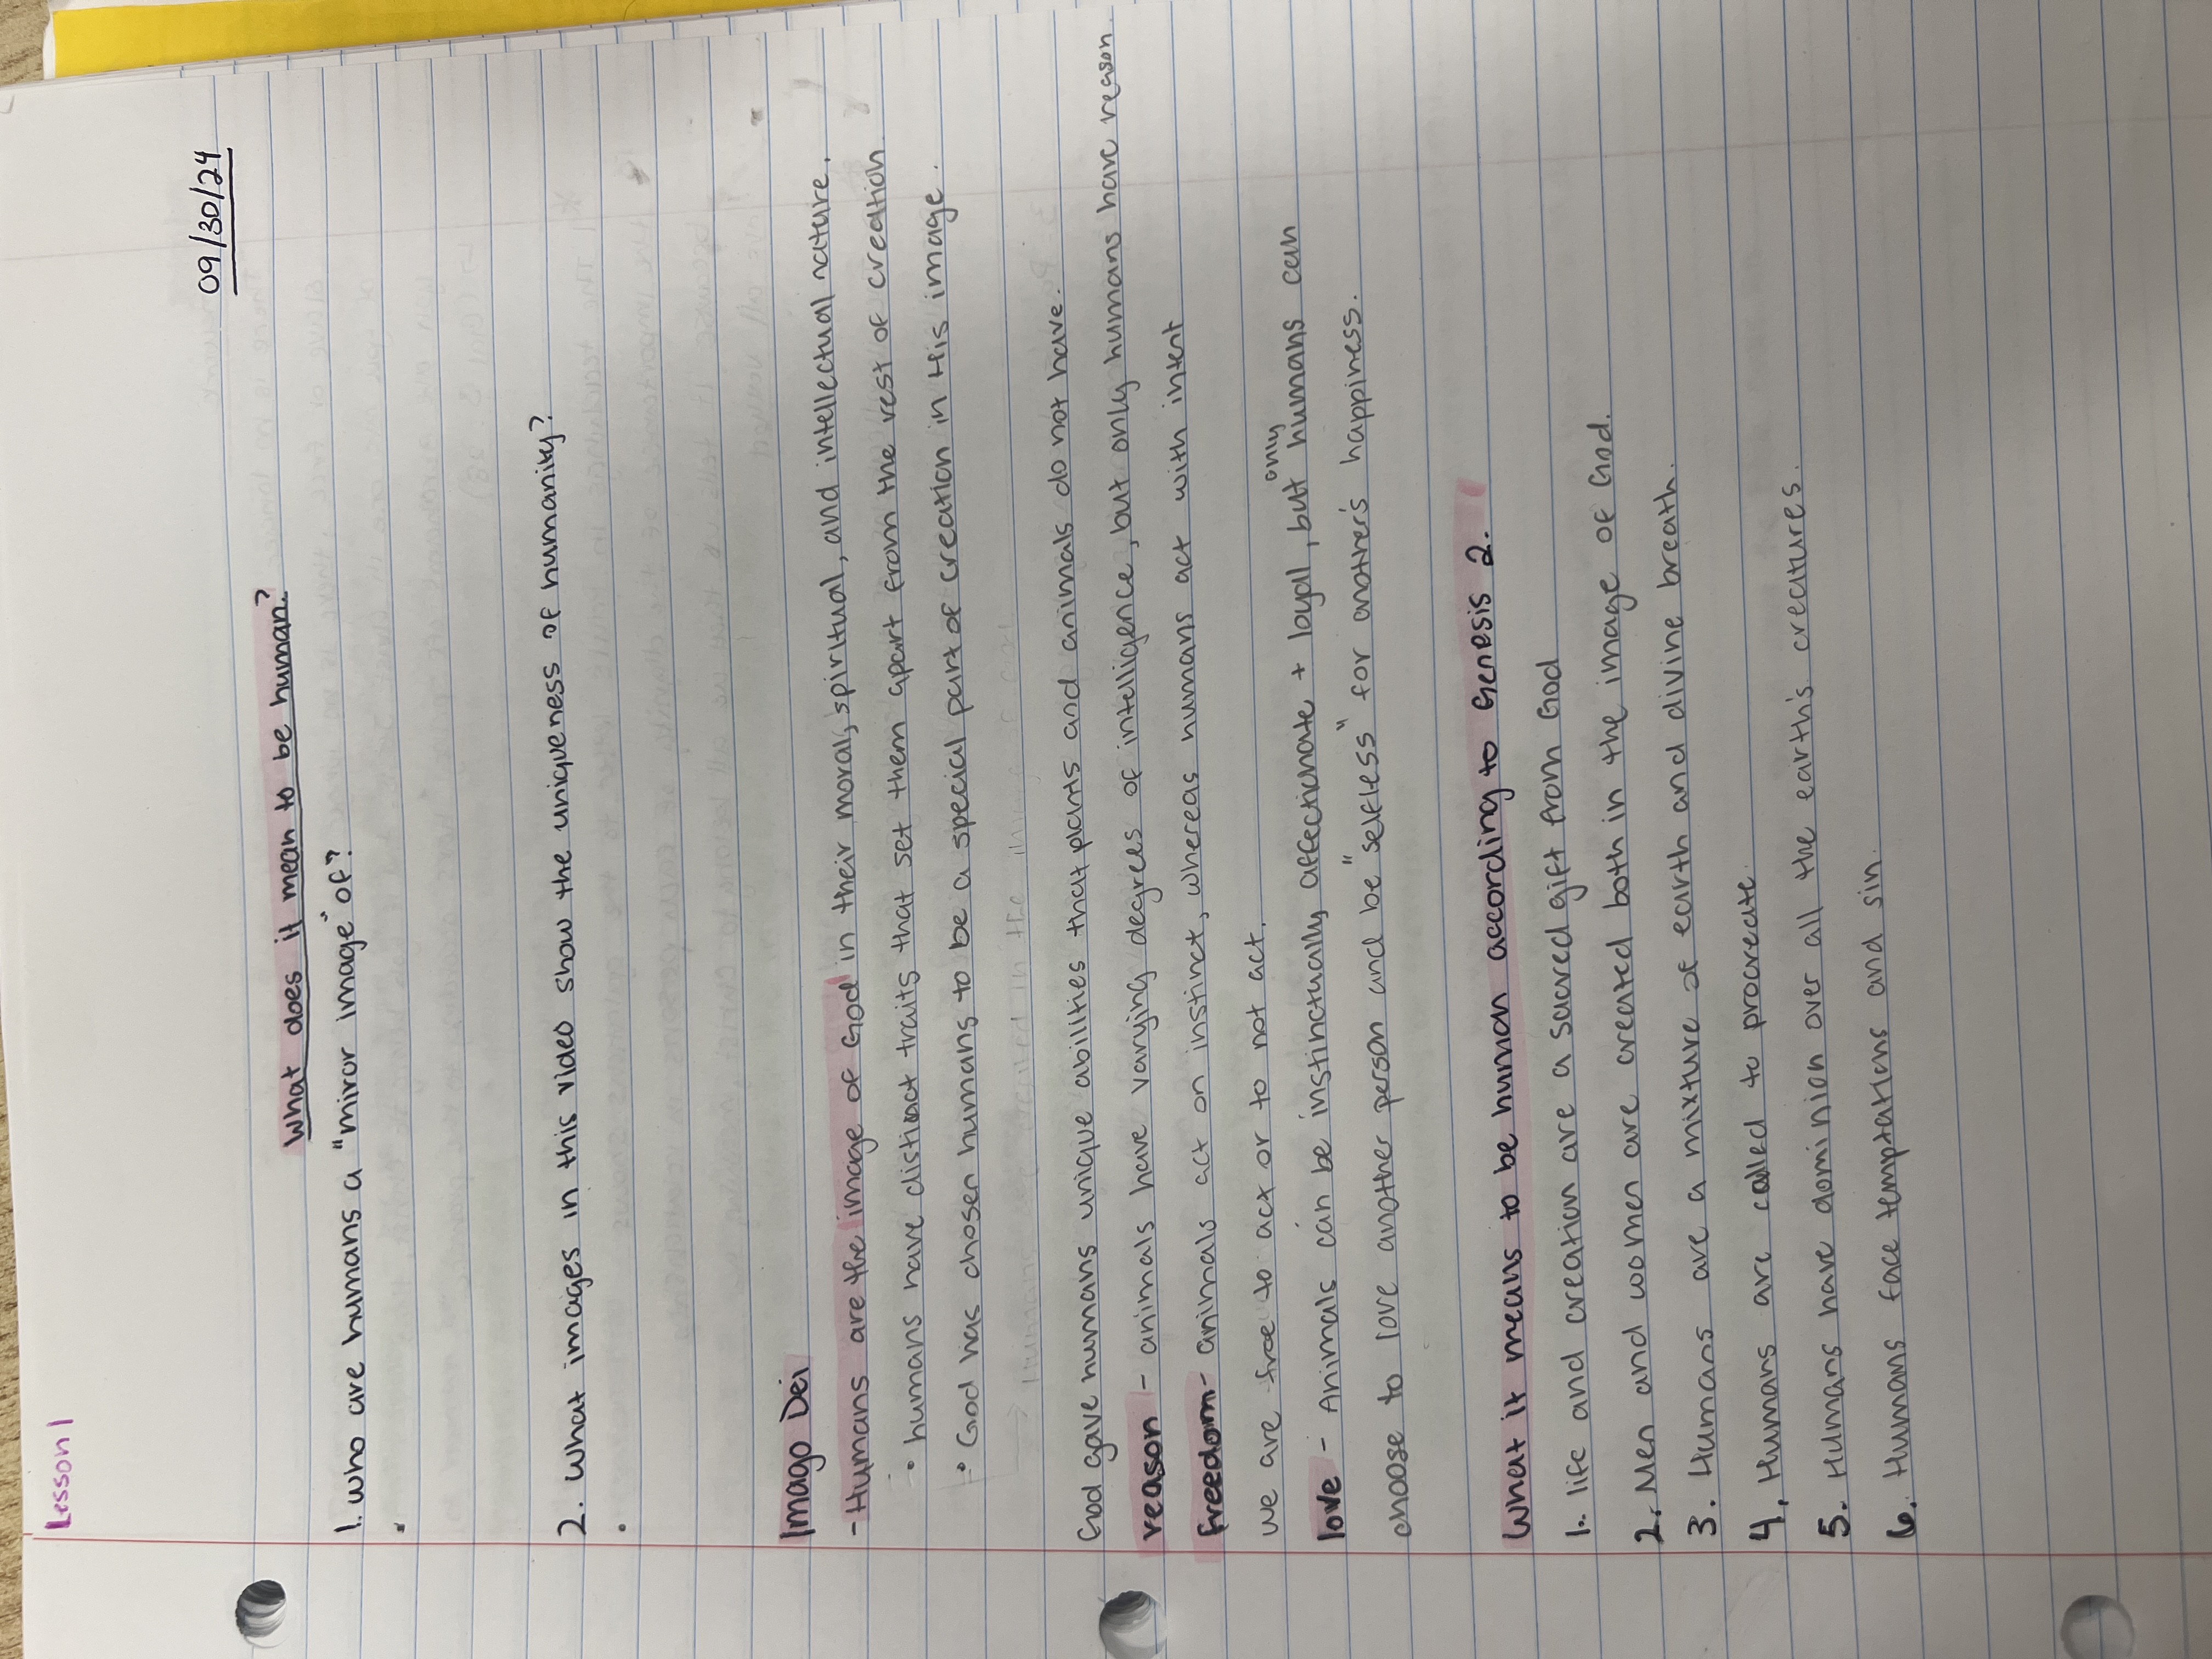 Lesson 1
09/30/24
What does it mean to be human?
1. Who are humans a "mirror image" of?
•
2. What images in this video show the uniqueness of humanity?
•
Imago Dei
- Humans are the image of God in their moral, spiritual, and intellectual nature.
• humans have distinct traits that set them apart from the rest of creation
• God has chosen humans to be a special part of creation in His image.
God gave humans unique abilities that plants and animals do not have.
reason - animals have varying degrees of intelligence, but only humans have reason
freedom - animals act on instinct, whereas humans act with intent
we are free to act or to not act.
love - Animals can be instinctually affectionate + loyal, but only humans can
choose to love another person and be "selfless" for another's happiness.
What it means to be human according to Genesis 2.
1. life and creation are a sacred gift from God
2. Men and women are created both in the image of God.
3. Humans are a mixture of earth and divine breath.
4. Humans are called to procreate.
5. Humans have dominion over all the earth's creatures.
6. Humans face temptations and sin.